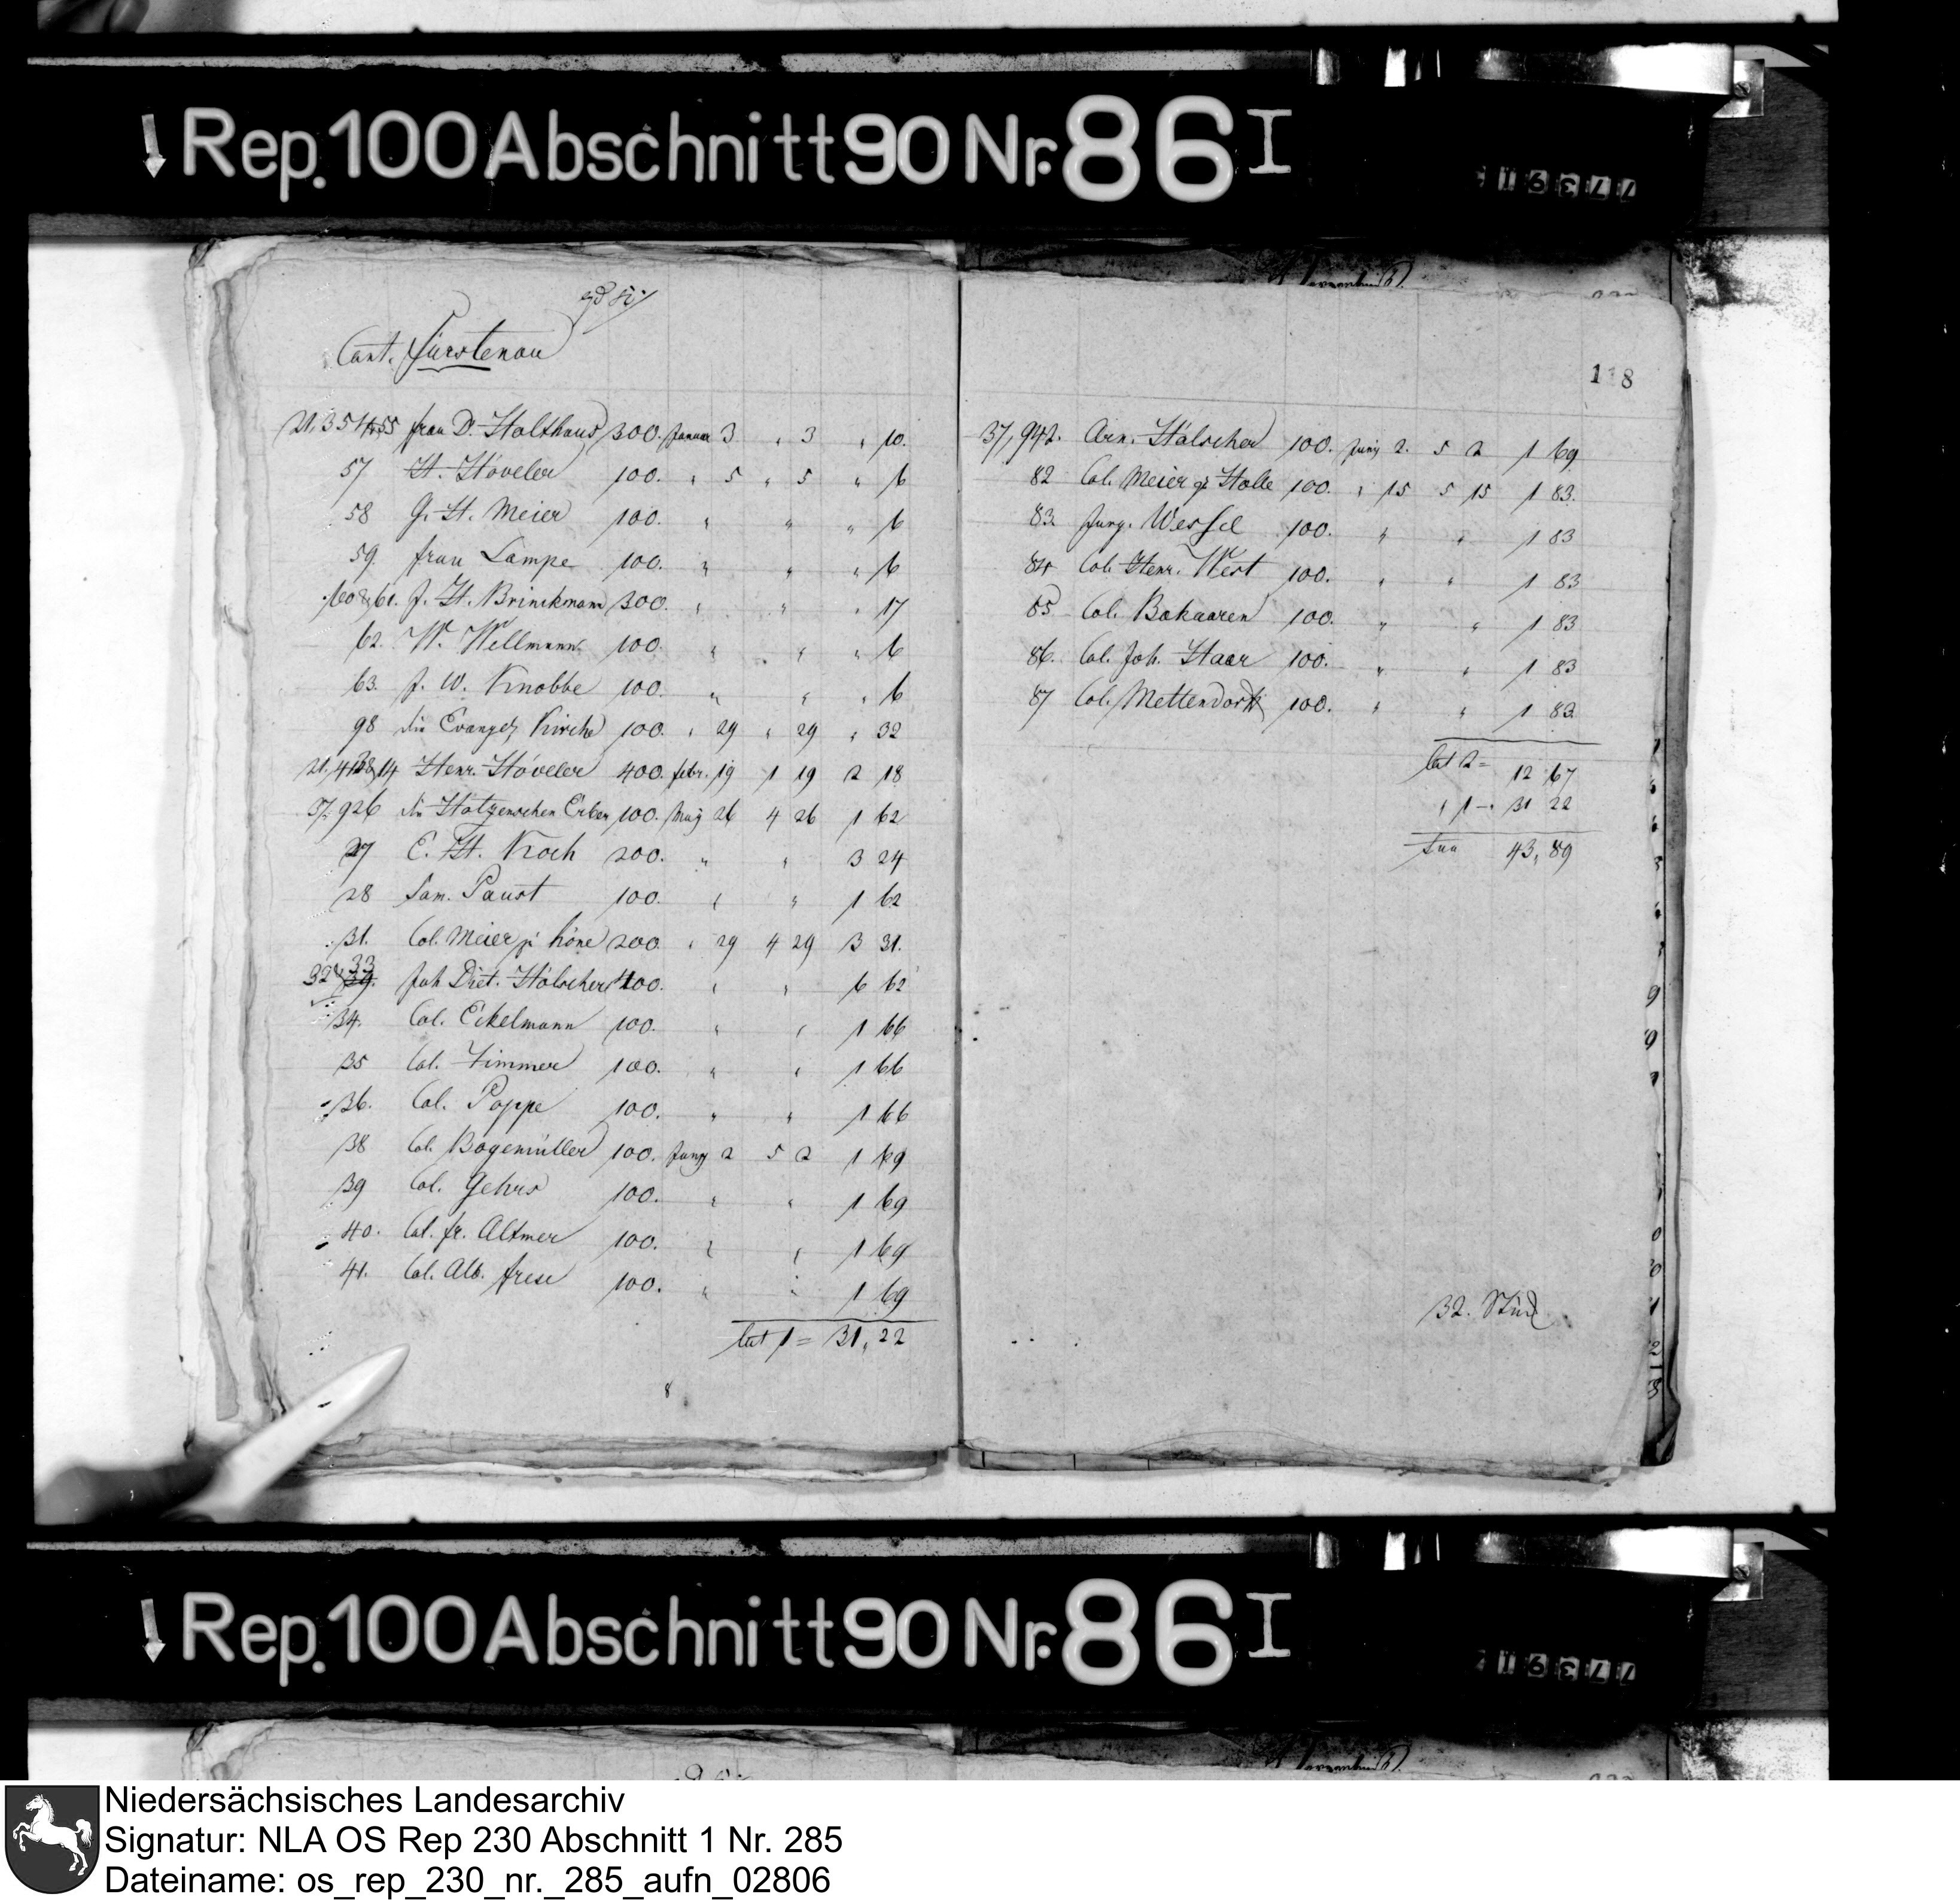 Rep. 100 Abschnitt 90 Nr. 86 I
Cant. Fürstenau
21,354 & 55 Frau D. Holthaus 300. Januar 3 " 3 " 10.
57 H. Höveler 100. " 5 " 5 " 6
58 G. H. Meier 100. " " " 6
59. Frau Lampe 100. " " " 6
60 & 61. J. H. Brinckmann 300. " " " 17
62. W. Wellmann 100. " " " 6
63. J. W. Knobbe 100. " " " 6
98 die Evangel. Kirche 100. " 29 " 29 " 32
Henr. Höveler 400. Febr. 19 1 19 2 18
37,926 die Erben 100. May 26 4 26 1 62
27 E. H. Koch 200. " " 3 24
28 Sam. Paust 100. " " 1 62
31. Col. Meier zu Höne 200. " 29 4 29 3 31.
32 & 33 Joh Diet. Hölscher 400. " " 6 62
34. Col. Eckelmann 100. " " 1 66
35 Col. Timmer 100. " " 1 66
36. Col. Poppe 100. " " 1 66
38 Col. Bogemüller 100. Juny 2 5 2 1 69
39 Col. Gehrs 100. " " 1 69
40. Col. Fr. Altmer 100. " " 1 69
41. Col. Alb. Frese 100. " " 1 69
lat 1 = 31, 22
8
118
37,942. Arn. Hölscher 100. Juny 2. 5 2 1 69
82 Col. Meier zu Holle 100. " 15 5 15 1 83
83. Jung. Wessel 100. " " 1 83
84 Col. Henr. West 100. " " 1 83
85 Col. Bokaaren 100. " " 1 83
86. Col. Joh. Haar 100. " " 1 83
87 Col. Mettendorf 100. " " 1 83
lat 2 = 12 67
" 1 - 31 22
43, 89
32. Stück
Rep. 100 Abschnitt 90 Nr. 86 I
Niedersächsisches Landesarchiv
Signatur: NLA OS Rep 230 Abschnitt 1 Nr. 285
Dateiname: os_rep_230_nr._285_aufn_02806